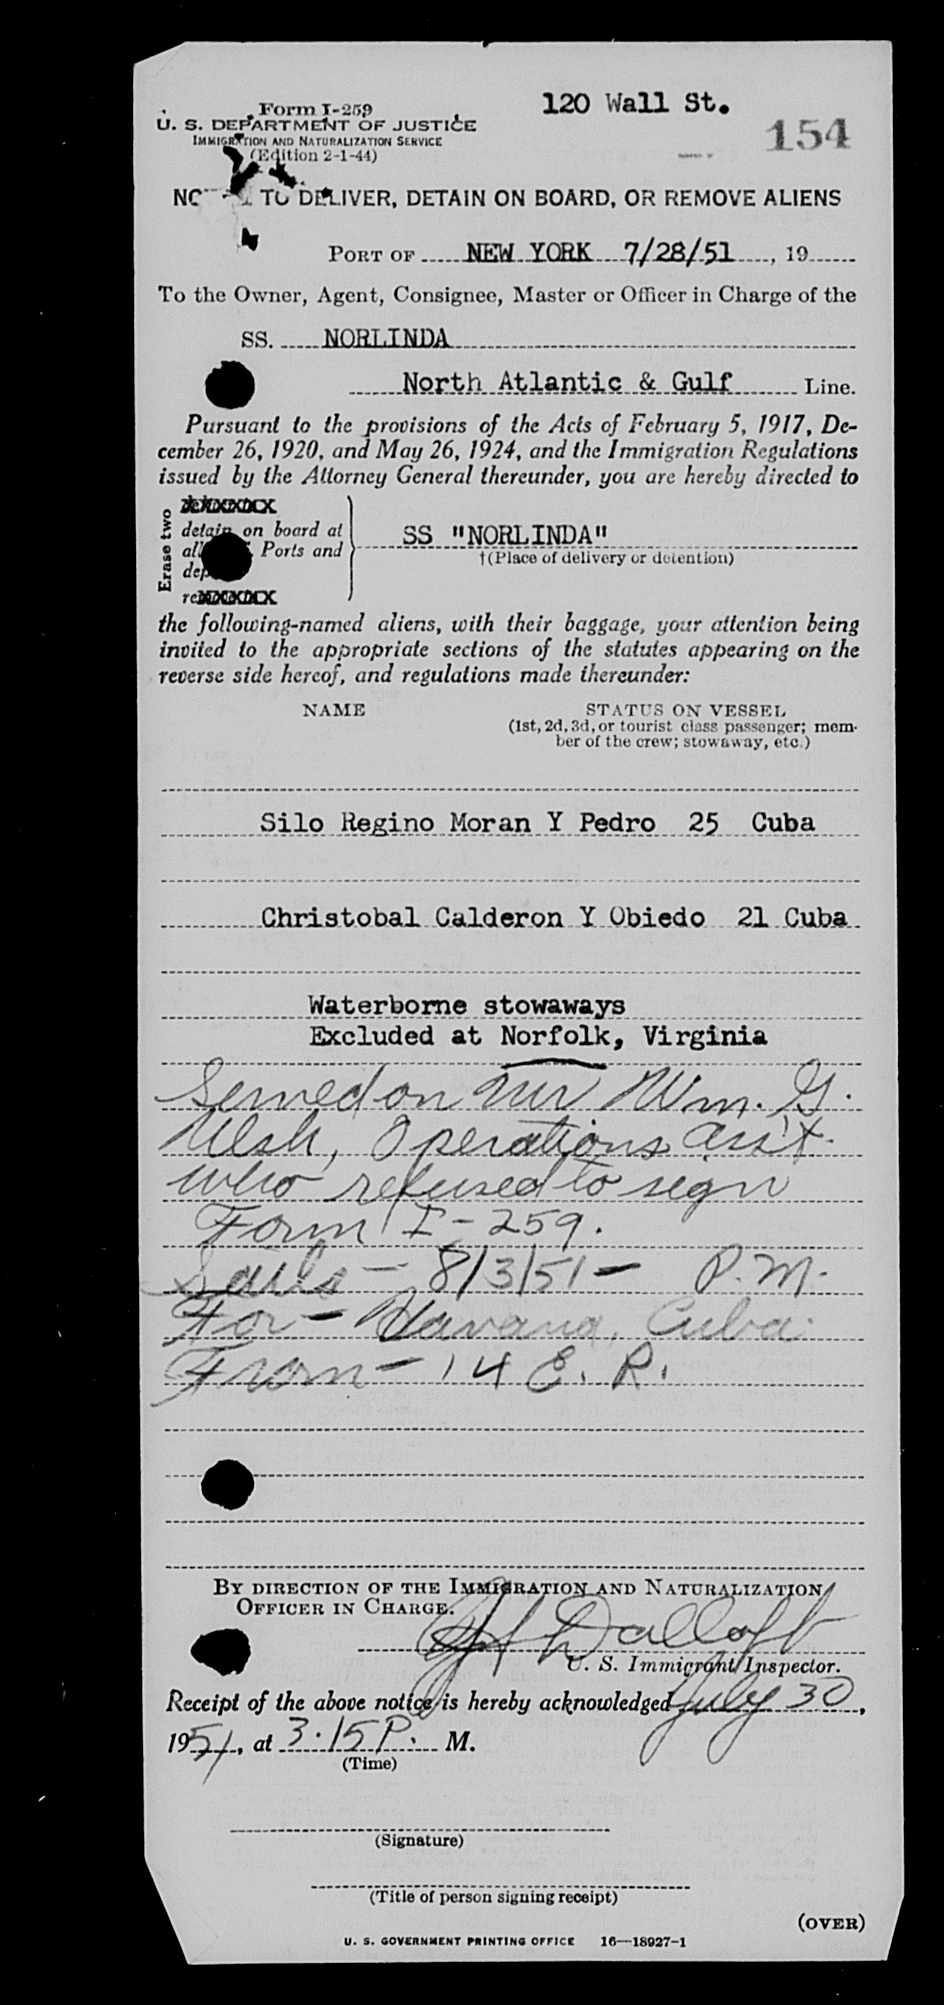 120 Wall St.
Form I-259
U. S. DEPARTMENT OF JUSTICE
IMMIGRATION AND NATURALIZATION SERVICE
(Edition 2-1-44)
154
TO DELIVER, DETAIN ON BOARD, OR REMOVE ALIENS
PORT OF NEW YORK 7/28/51, 19
To the Owner, Agent, Consignee, Master or Officer in Charge of the
SS. NORLINDA
North Atlantic & Gulf Line.
Pursuant to the provisions of the Acts of February 5, 1917, De-
cember 26, 1920, and May 26, 1924, and the Immigration Regulations
issued by the Attorney General thereunder, you are hereby directed to
Erase two
detain on board at
Ports and
SS "NORLINDA"
†(Place of delivery or detention)
the following-named aliens, with their baggage, your attention being
invited to the appropriate sections of the statutes appearing on the
reverse side hereof, and regulations made thereunder:
NAME
STATUS ON VESSEL
(1st, 2d, 3d, or tourist class passenger; mem-
ber of the crew; stowaway, etc.)
Silo Regino Moran Y Pedro 25 Cuba
Christobal Calderon Y Obiedo 21 Cuba
Waterborne stowaways
Excluded at Norfolk, Virginia
Served on Mr Wm. G.
Operations Ass't.
who refused to sign
Form I-259.
Sails - 8/3/51 - P.M.
For - Havana, Cuba.
From - 14 E. R.
BY DIRECTION OF THE IMMIGRATION AND NATURALIZATION
OFFICER IN CHARGE.
U. S. Immigrant Inspector.
Receipt of the above notice is hereby acknowledged July 30,
1951, at 3.15 P. M.
(Time)
(Signature)
(Title of person signing receipt)
(OVER)
U. S. GOVERNMENT PRINTING OFFICE 16—18927-1